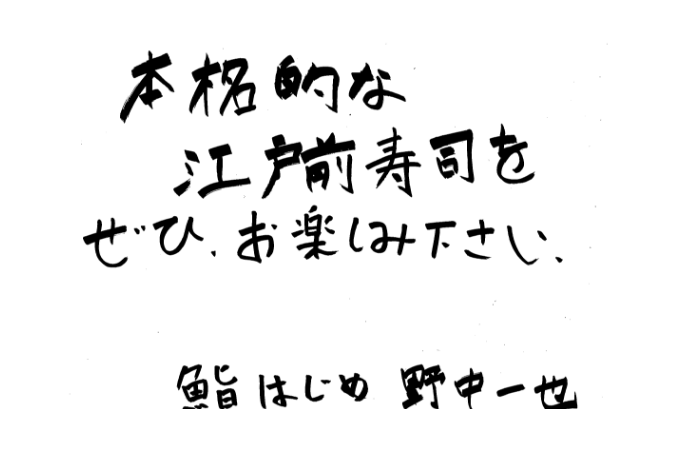 本格的な
江戸前寿司を
ぜひ、お楽しみ下さい、
鮨はじめ 野中一也